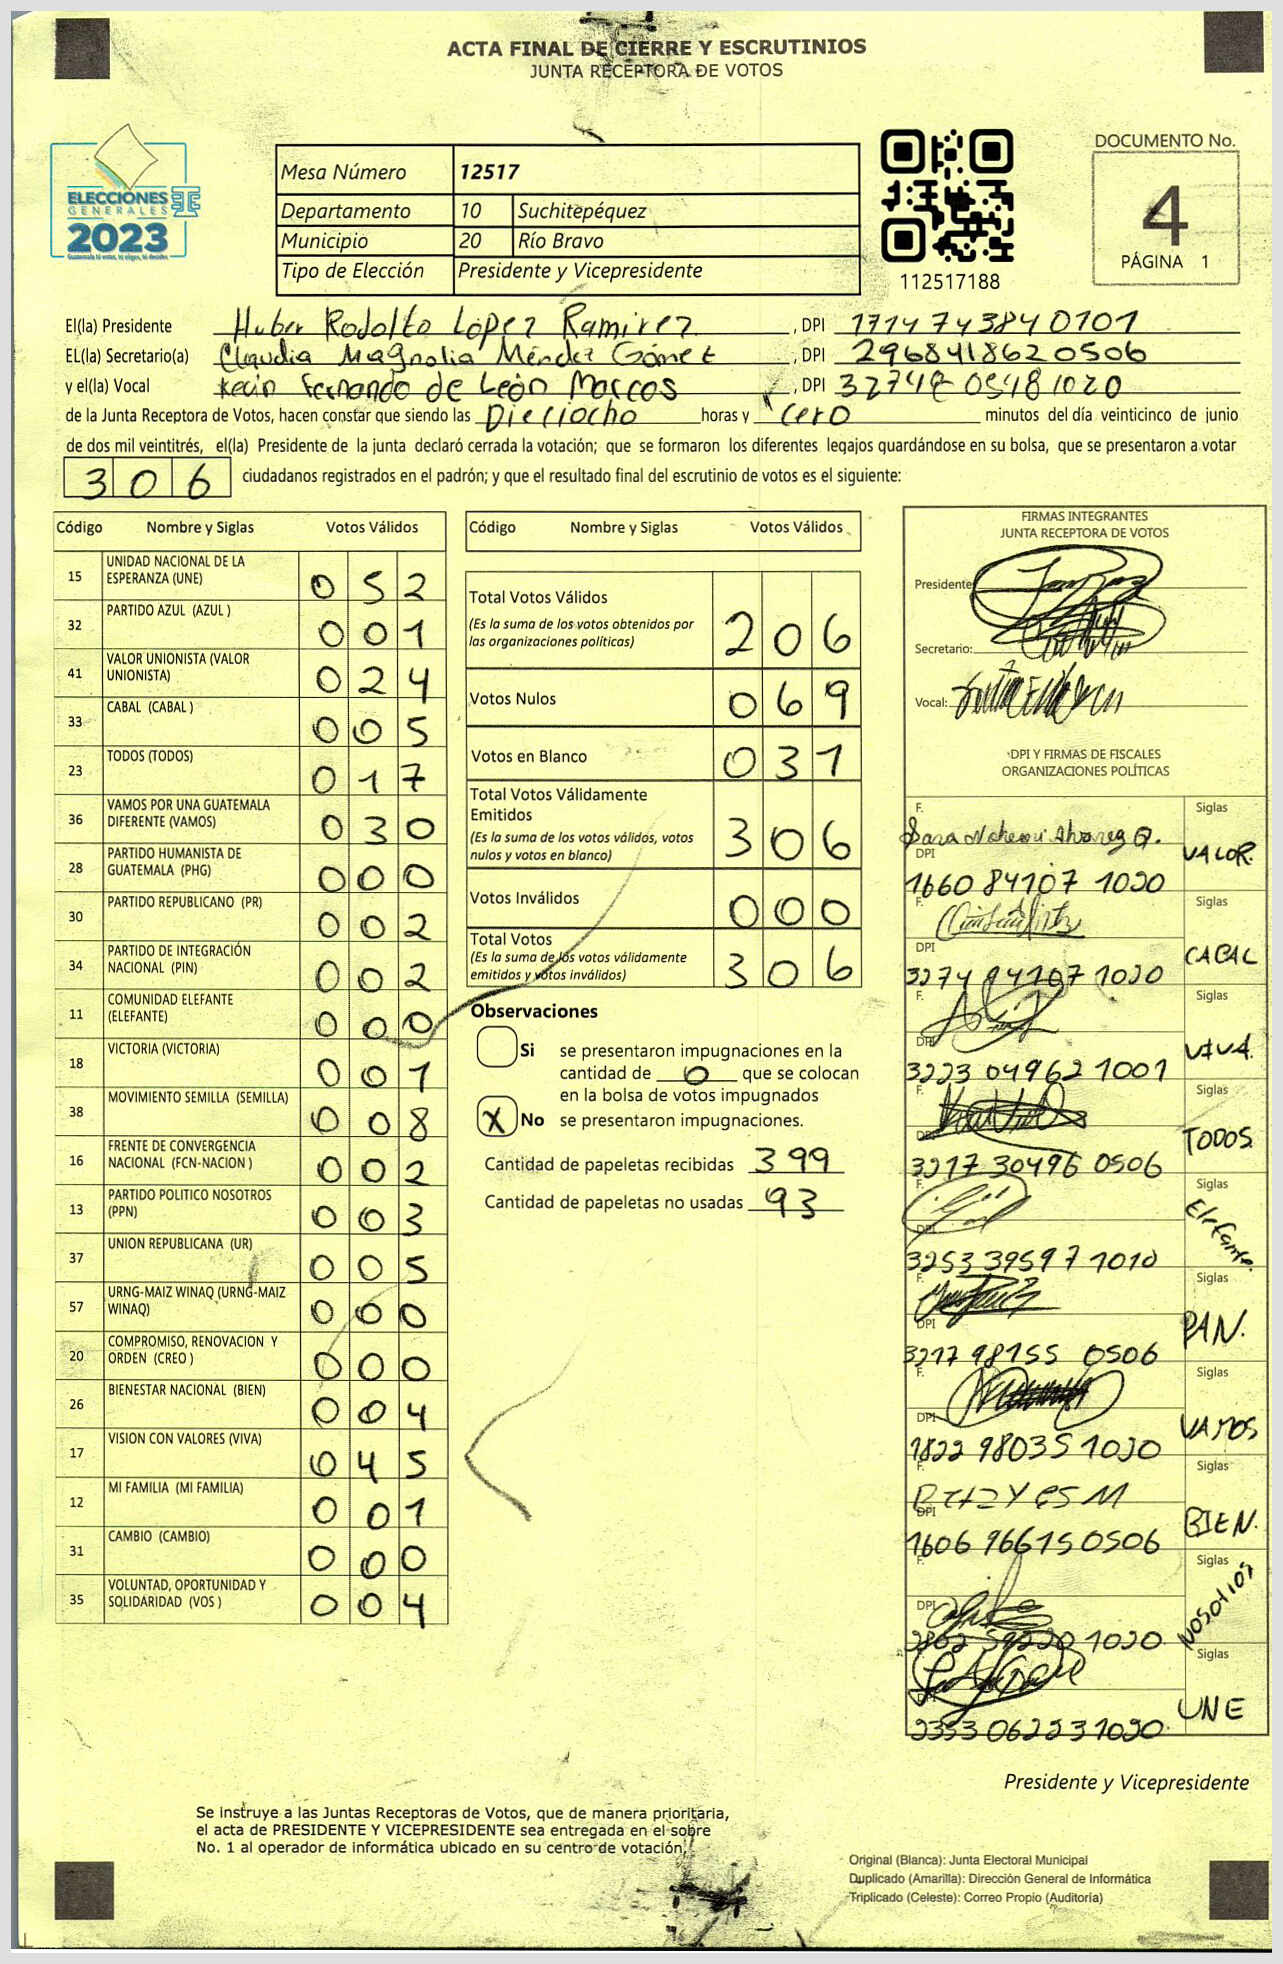 ACTA FINAL DE CIERRE Y ESCRUTINIOS
JUNTA RECEPTORA DE VOTOS
ELECCIONES
GENERALES
2023
Mesa Número 12517
Departamento 10 Suchitepéquez
Municipio 20 Río Bravo
Tipo de Elección Presidente y Vicepresidente
112517188
DOCUMENTO No.
4
PÁGINA 1
El(la) Presidente Huber Rodolfo López Ramirez , DPI 1714 74384 0101
EL(la) Secretario(a) Claudia Magnolia Méndez Gómez , DPI 2968418620506
y el(la) Vocal Kevin Fernando de León Marcos , DPI 32748 0548 1020
de la Junta Receptora de Votos, hacen constar que siendo las Dieciocho horas y cero minutos del día veinticinco de junio
de dos mil veintitrés, el(la) Presidente de la junta declaró cerrada la votación; que se formaron los diferentes legajos guardándose en su bolsa, que se presentaron a votar
306 ciudadanos registrados en el padrón; y que el resultado final del escrutinio de votos es el siguiente:
Código Nombre y Siglas Votos Válidos
15 UNIDAD NACIONAL DE LA ESPERANZA (UNE) 052
32 PARTIDO AZUL (AZUL ) 001
41 VALOR UNIONISTA (VALOR UNIONISTA) 024
33 CABAL (CABAL ) 005
23 TODOS (TODOS) 017
36 VAMOS POR UNA GUATEMALA DIFERENTE (VAMOS) 030
28 PARTIDO HUMANISTA DE GUATEMALA (PHG) 000
30 PARTIDO REPUBLICANO (PR) 002
34 PARTIDO DE INTEGRACIÓN NACIONAL (PIN) 002
11 COMUNIDAD ELEFANTE (ELEFANTE) 000
18 VICTORIA (VICTORIA) 001
38 MOVIMIENTO SEMILLA (SEMILLA) 008
16 FRENTE DE CONVERGENCIA NACIONAL (FCN-NACION ) 002
13 PARTIDO POLITICO NOSOTROS (PPN) 003
37 UNION REPUBLICANA (UR) 005
57 URNG-MAIZ WINAQ (URNG-MAIZ WINAQ) 000
20 COMPROMISO, RENOVACION Y ORDEN (CREO ) 000
26 BIENESTAR NACIONAL (BIEN) 004
17 VISION CON VALORES (VIVA) 045
12 MI FAMILIA (MI FAMILIA) 001
31 CAMBIO (CAMBIO) 000
35 VOLUNTAD, OPORTUNIDAD Y SOLIDARIDAD (VOS ) 004
Código Nombre y Siglas Votos Válidos
Total Votos Válidos 206
(Es la suma de los votos obtenidos por
las organizaciones políticas)
Votos Nulos 069
Votos en Blanco 031
Total Votos Válidamente
Emitidos 306
(Es la suma de los votos válidos, votos
nulos y votos en blanco)
Votos Inválidos 000
Total Votos 306
(Es la suma de los votos válidamente
emitidos y votos inválidos)
Observaciones
Si se presentaron impugnaciones en la
cantidad de 0 que se colocan
en la bolsa de votos impugnados
X No se presentaron impugnaciones.
Cantidad de papeletas recibidas 399
Cantidad de papeletas no usadas 93
FIRMAS INTEGRANTES
JUNTA RECEPTORA DE VOTOS
Presidente:
Secretario:
Vocal:
DPI Y FIRMAS DE FISCALES
ORGANIZACIONES POLÍTICAS
F. Siglas
DPI VALOR.
1660 84107 1020
F. Siglas
DPI CABAL
3274 94107 1020
F. Siglas
DPI VIVA.
3223 04962 1001
F. Siglas
DPI TODOS
3217 30496 0506
F. Siglas
DPI Elefante.
3253 39597 1010
F. Siglas
DPI PAN.
3217 98155 0506
F. Siglas
DPI VAMOS
1822 98035 1020
F. Siglas
DPI BIEN.
1606 96615 0506
F. Siglas
DPI NOSOTROS
2802 59220 1020
F. Siglas
DPI UNE
2353 06223 1020
Presidente y Vicepresidente
Se instruye a las Juntas Receptoras de Votos, que de manera prioritaria,
el acta de PRESIDENTE Y VICEPRESIDENTE sea entregada en el sobre
No. 1 al operador de informática ubicado en su centro de votación.
Original (Blanca): Junta Electoral Municipal
Duplicado (Amarilla): Dirección General de Informática
Triplicado (Celeste): Correo Propio (Auditoría)